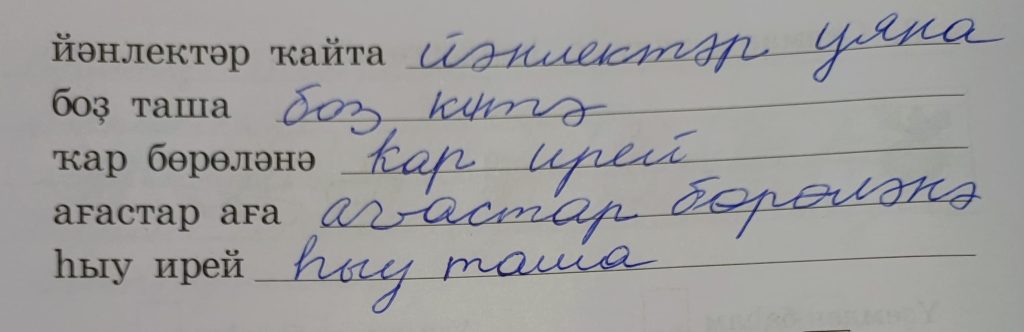 йәнлектәр ҡайта йәнлектәр уяна
боҙ таша боҙ китә
ҡар бөрөләнә ҡар ирей
ағастар аға ағастар бөрөләнә
һыу ирей һыу таша